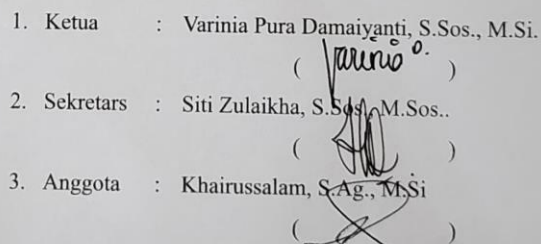 1. Ketua : Varinia Pura Damaiyanti, S.Sos., M.Si.
( Varinia D. )
2. Sekretars : Siti Zulaikha, S.Sos., M.Sos..
( )
3. Anggota : Khairussalam, S.Ag., M.Si
( )